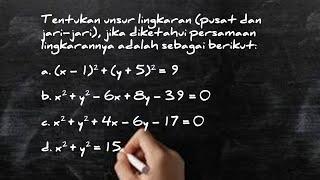 Tentukan unsur lingkaran (pusat dan
jari-jari), jika diketahui persamaan
lingkarannya adalah sebagai berikut:
a. (x - 1)² + (y + 5)² = 9
b. x² + y² - 6x + 8y - 39 = 0
c. x² + y² + 4x - 6y - 17 = 0
d. x² + y² = 15